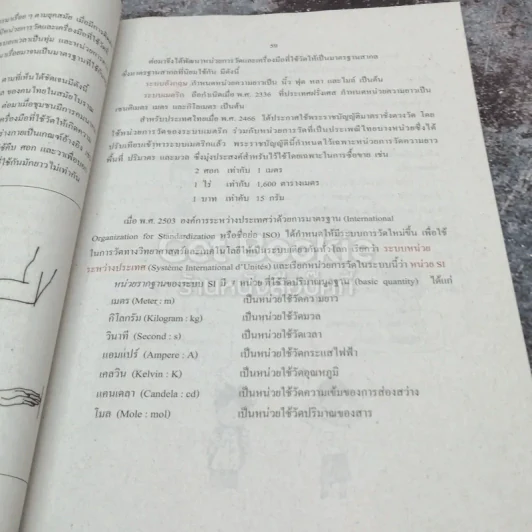 50
ต่อมาจึงได้พัฒนาหน่วยการวัดและเครื่องมือที่ใช้วัดให้เป็นมาตรฐานสากล
ซึ่งมาตรฐานสากลที่นิยมใช้กัน มีดังนี้
ระบบอังกฤษ กำหนดหน่วยความยาวเป็น นิ้ว ฟุต หลา และไมล์ เป็นต้น
ระบบเมตริก ถือกำเนิดเมื่อ พ.ศ. 2336 ที่ประเทศฝรั่งเศส กำหนดหน่วยความยาวเป็น
เซนติเมตร เมตร และกิโลเมตร เป็นต้น
สำหรับประเทศไทยเมื่อ พ.ศ. 2466 ได้ประกาศใช้พระราชบัญญัติมาตราชั่งตวงวัด โดย
ใช้หน่วยการวัดของระบบเมตริก ร่วมกับหน่วยการวัดที่เป็นประเพณีไทยบางหน่วยซึ่งได้
ปรับเทียบเข้าหาระบบเมตริกแล้ว พระราชบัญญัตินี้กำหนดไว้เฉพาะหน่วยการวัดความยาว
พื้นที่ ปริมาตร และมวล ซึ่งมุ่งประสงค์สำหรับไว้ใช้โดยเฉพาะในการซื้อขาย เช่น
2 ศอก เท่ากับ 1 เมตร
1 ไร่ เท่ากับ 1,600 ตารางเมตร
1 บาท เท่ากับ 15 กรัม
เมื่อ พ.ศ. 2503 องค์การระหว่างประเทศว่าด้วยการมาตรฐาน (International
Organization for Standardization หรือชื่อย่อ ISO) ได้กำหนดให้มีระบบการวัดใหม่ขึ้น เพื่อใช้
ในการวัดทางวิทยาศาสตร์และเทคโนโลยีให้เป็นระบบเดียวกันทั่วโลก เรียกว่า ระบบหน่วย
ระหว่างประเทศ (Système International d'Unités) และเรียกหน่วยการวัดในระบบนี้ว่า หน่วย SI
หน่วยรากฐานของระบบ SI มี 7 หน่วย ที่ใช้วัดปริมาณมูลฐาน (basic quantity) ได้แก่
เมตร (Meter : m) เป็นหน่วยใช้วัดความยาว
กิโลกรัม (Kilogram : kg) เป็นหน่วยใช้วัดมวล
วินาที (Second : s) เป็นหน่วยใช้วัดเวลา
แอมแปร์ (Ampere : A) เป็นหน่วยใช้วัดกระแสไฟฟ้า
เคลวิน (Kelvin : K) เป็นหน่วยใช้วัดอุณหภูมิ
แคนเดลา (Candela : cd) เป็นหน่วยใช้วัดความเข้มของการส่องสว่าง
โมล (Mole : mol) เป็นหน่วยใช้วัดปริมาณของสาร